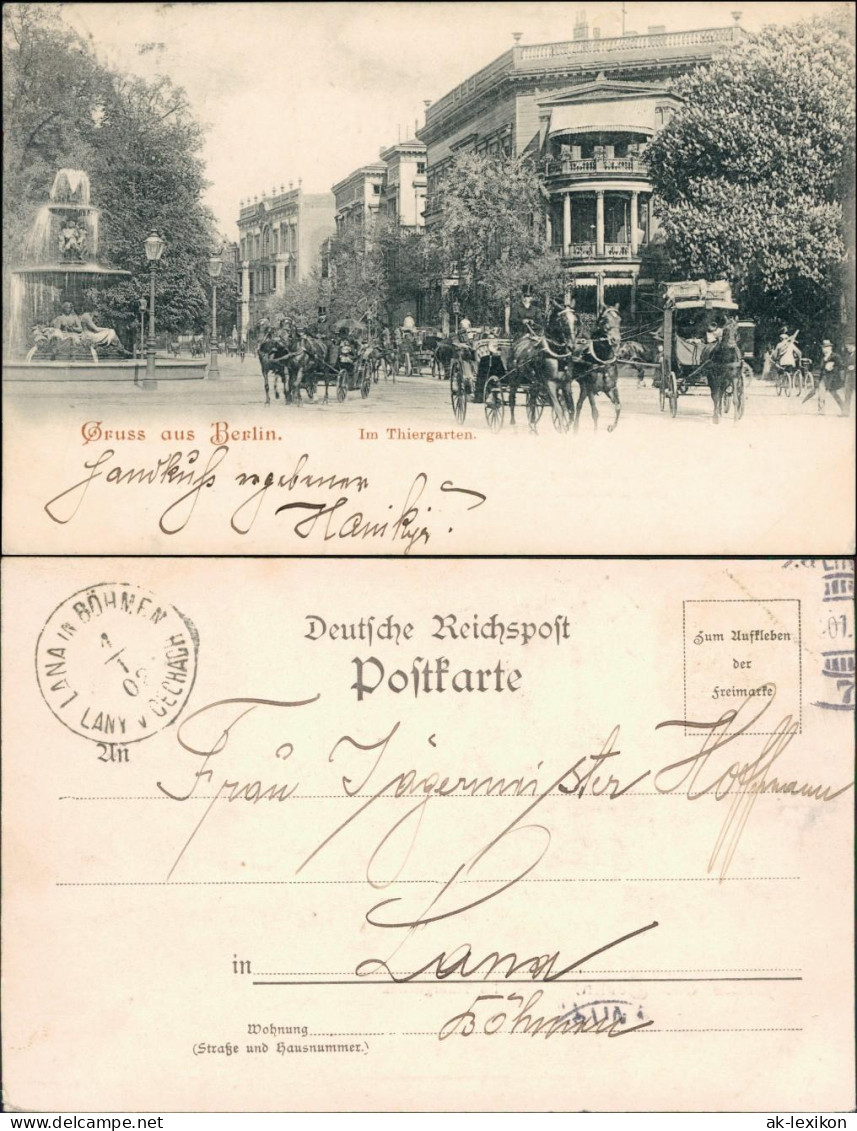 Gruss aus Berlin. Im Thiergarten.
Handkuß ergebener
LANA IN BÖHMEN
LANY V ČECHÁCH
Deutsche Reichspost
Postkarte
Zum Aufkleben
der
Freimarke
An
Frau Jägermeister Hoffmann
in Lana
Böhmen
Wohnung
(Straße und Hausnummer.)
ak-lexikon